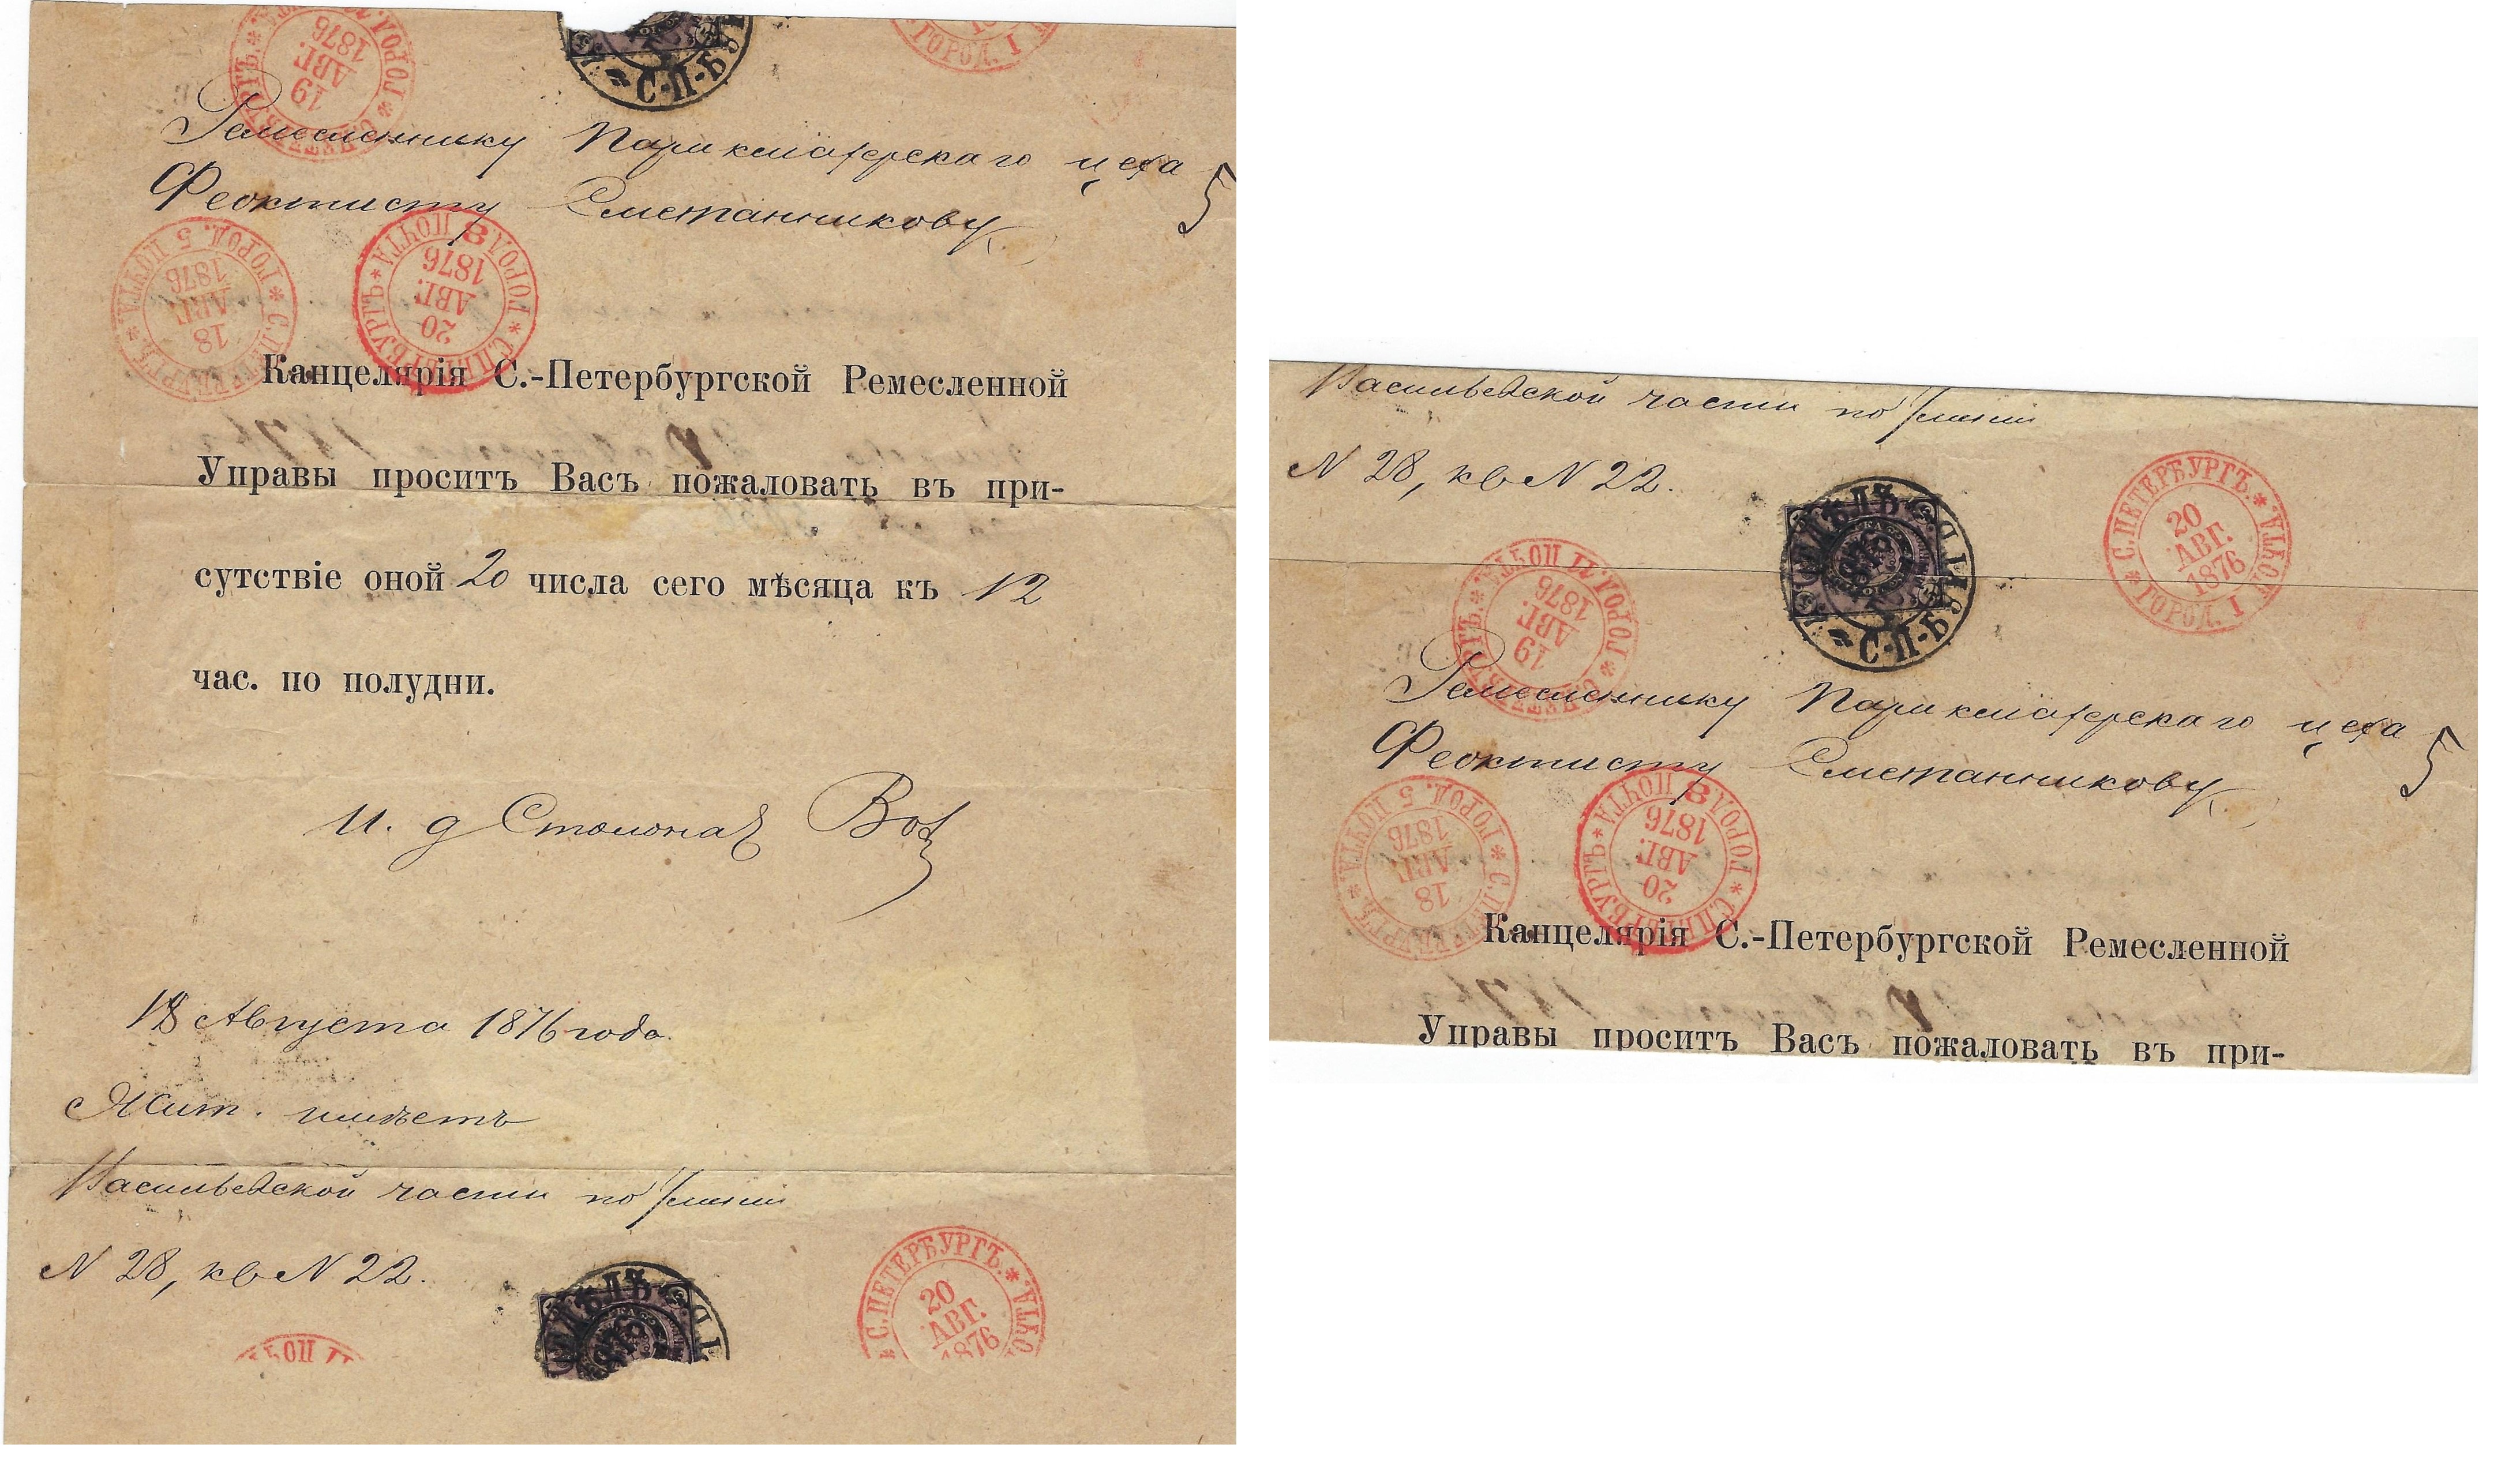 19 АВГ. 1876
ГОРОД. I
С·П·Б
Ремесленнику Парикмахерскаго цеха
Феоктисту Сметанникову
5
С.ПЕТЕРБУРГЪ * ГОРОД. 5 ПОЧТА
18 АВГ. 1876
С.ПЕТЕРБУРГЪ * ГОРОД. 8 ПОЧТА
20 АВГ. 1876
Канцелярія С.-Петербургской Ремесленной
Управы проситъ Васъ пожаловать въ при-
сутствіе оной 20 числа сего мѣсяца къ 12
час. по полудни.
И. д Столонач
18 Августа 1876 года.
Жит. имѣетъ
Васильевской части по 7 линіи
N 28, кв N 22.
С.ПЕТЕРБУРГЪ. ПОЧТА
20 АВГ. 1876
Васильевской части по 7 линіи
N 28, кв N 22.
С.ПЕТЕРБУРГЪ. * ГОРОД. I ПОЧТА
20 АВГ. 1876
С·П·Б
19 АВГ. 1876
Ремесленнику Парикмахерскаго цеха
Феоктисту Сметанникову
5
С.ПЕТЕРБУРГЪ * ГОРОД. 5 ПОЧТА
18 АВГ. 1876
С.ПЕТЕРБУРГЪ * ГОРОД. 8 ПОЧТА
20 АВГ. 1876
Канцелярія С.-Петербургской Ремесленной
Управы проситъ Васъ пожаловать въ при-